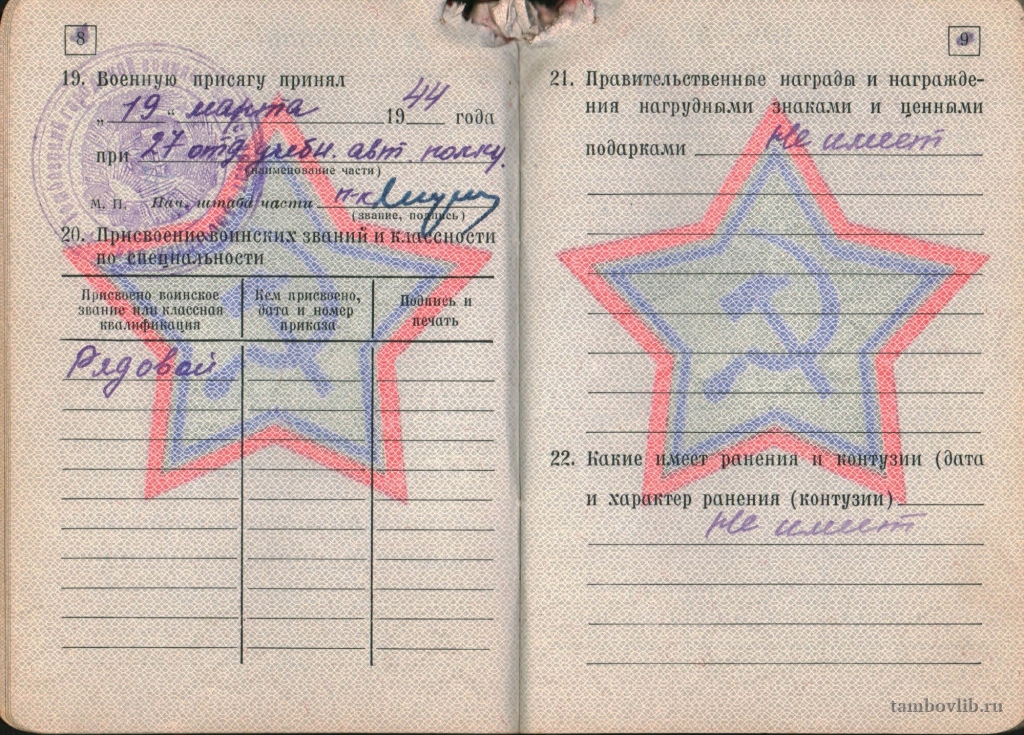 8
19. Военную присягу принял
„ 19 “ марта 1944 года
при 27 отд. учебн. авт. полку.
(наименование части)
М. П. Нач. штаба части п-к
(звание, подпись)
20. Присвоение воинских званий и классности
по специальности
Присвоено воинское
звание или классная
квалификация
Кем присвоено,
дата и номер
приказа
Подпись и
печать
Рядовой
9
21. Правительственные награды и награжде-
ния нагрудными знаками и ценными
подарками Не имеет
22. Какие имеет ранения и контузии (дата
и характер ранения (контузии)
Не имеет
tambovlib.ru